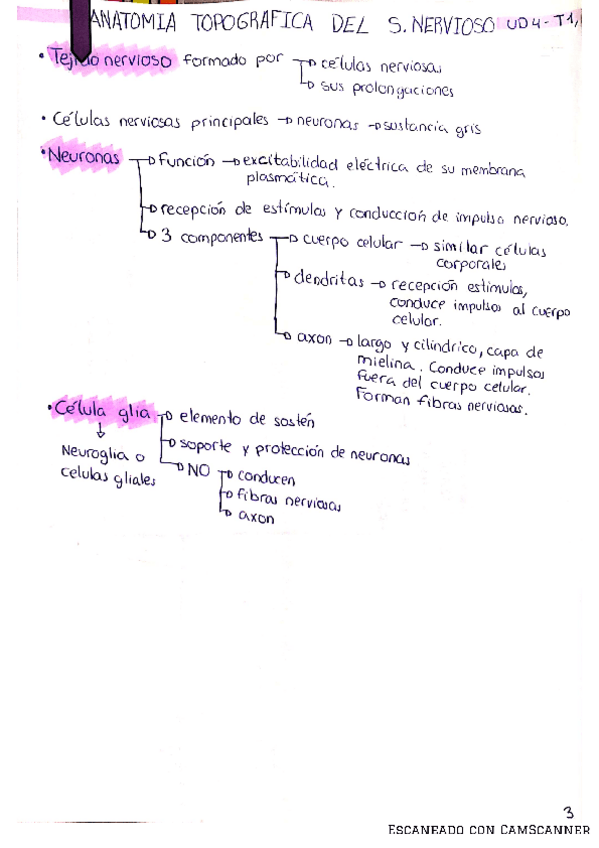 ANATOMIA TOPOGRAFICA DEL S. NERVIOSO UD4-T1,
• Tejido nervioso formado por → células nerviosas
→ sus prolongaciones
• Células nerviosas principales → neuronas → sustancia gris
• Neuronas → función → excitabilidad eléctrica de su membrana
plasmática.
→ recepción de estímulos y conducción de impulso nervioso.
→ 3 componentes → cuerpo celular → similar células
corporales
→ dendritas → recepción estimulos,
conduce impulsos al cuerpo
celular.
→ axon → largo y cilíndrico, capa de
mielina. Conduce impulsos
fuera del cuerpo celular.
Forman fibras nerviosas.
• Célula glia → elemento de sostén
→ soporte y protección de neuronas
↓
Neuroglia o
celulas gliales
→ NO → conducen
→ fibras nerviosas
→ axon
3
ESCANEADO CON CAMSCANNER